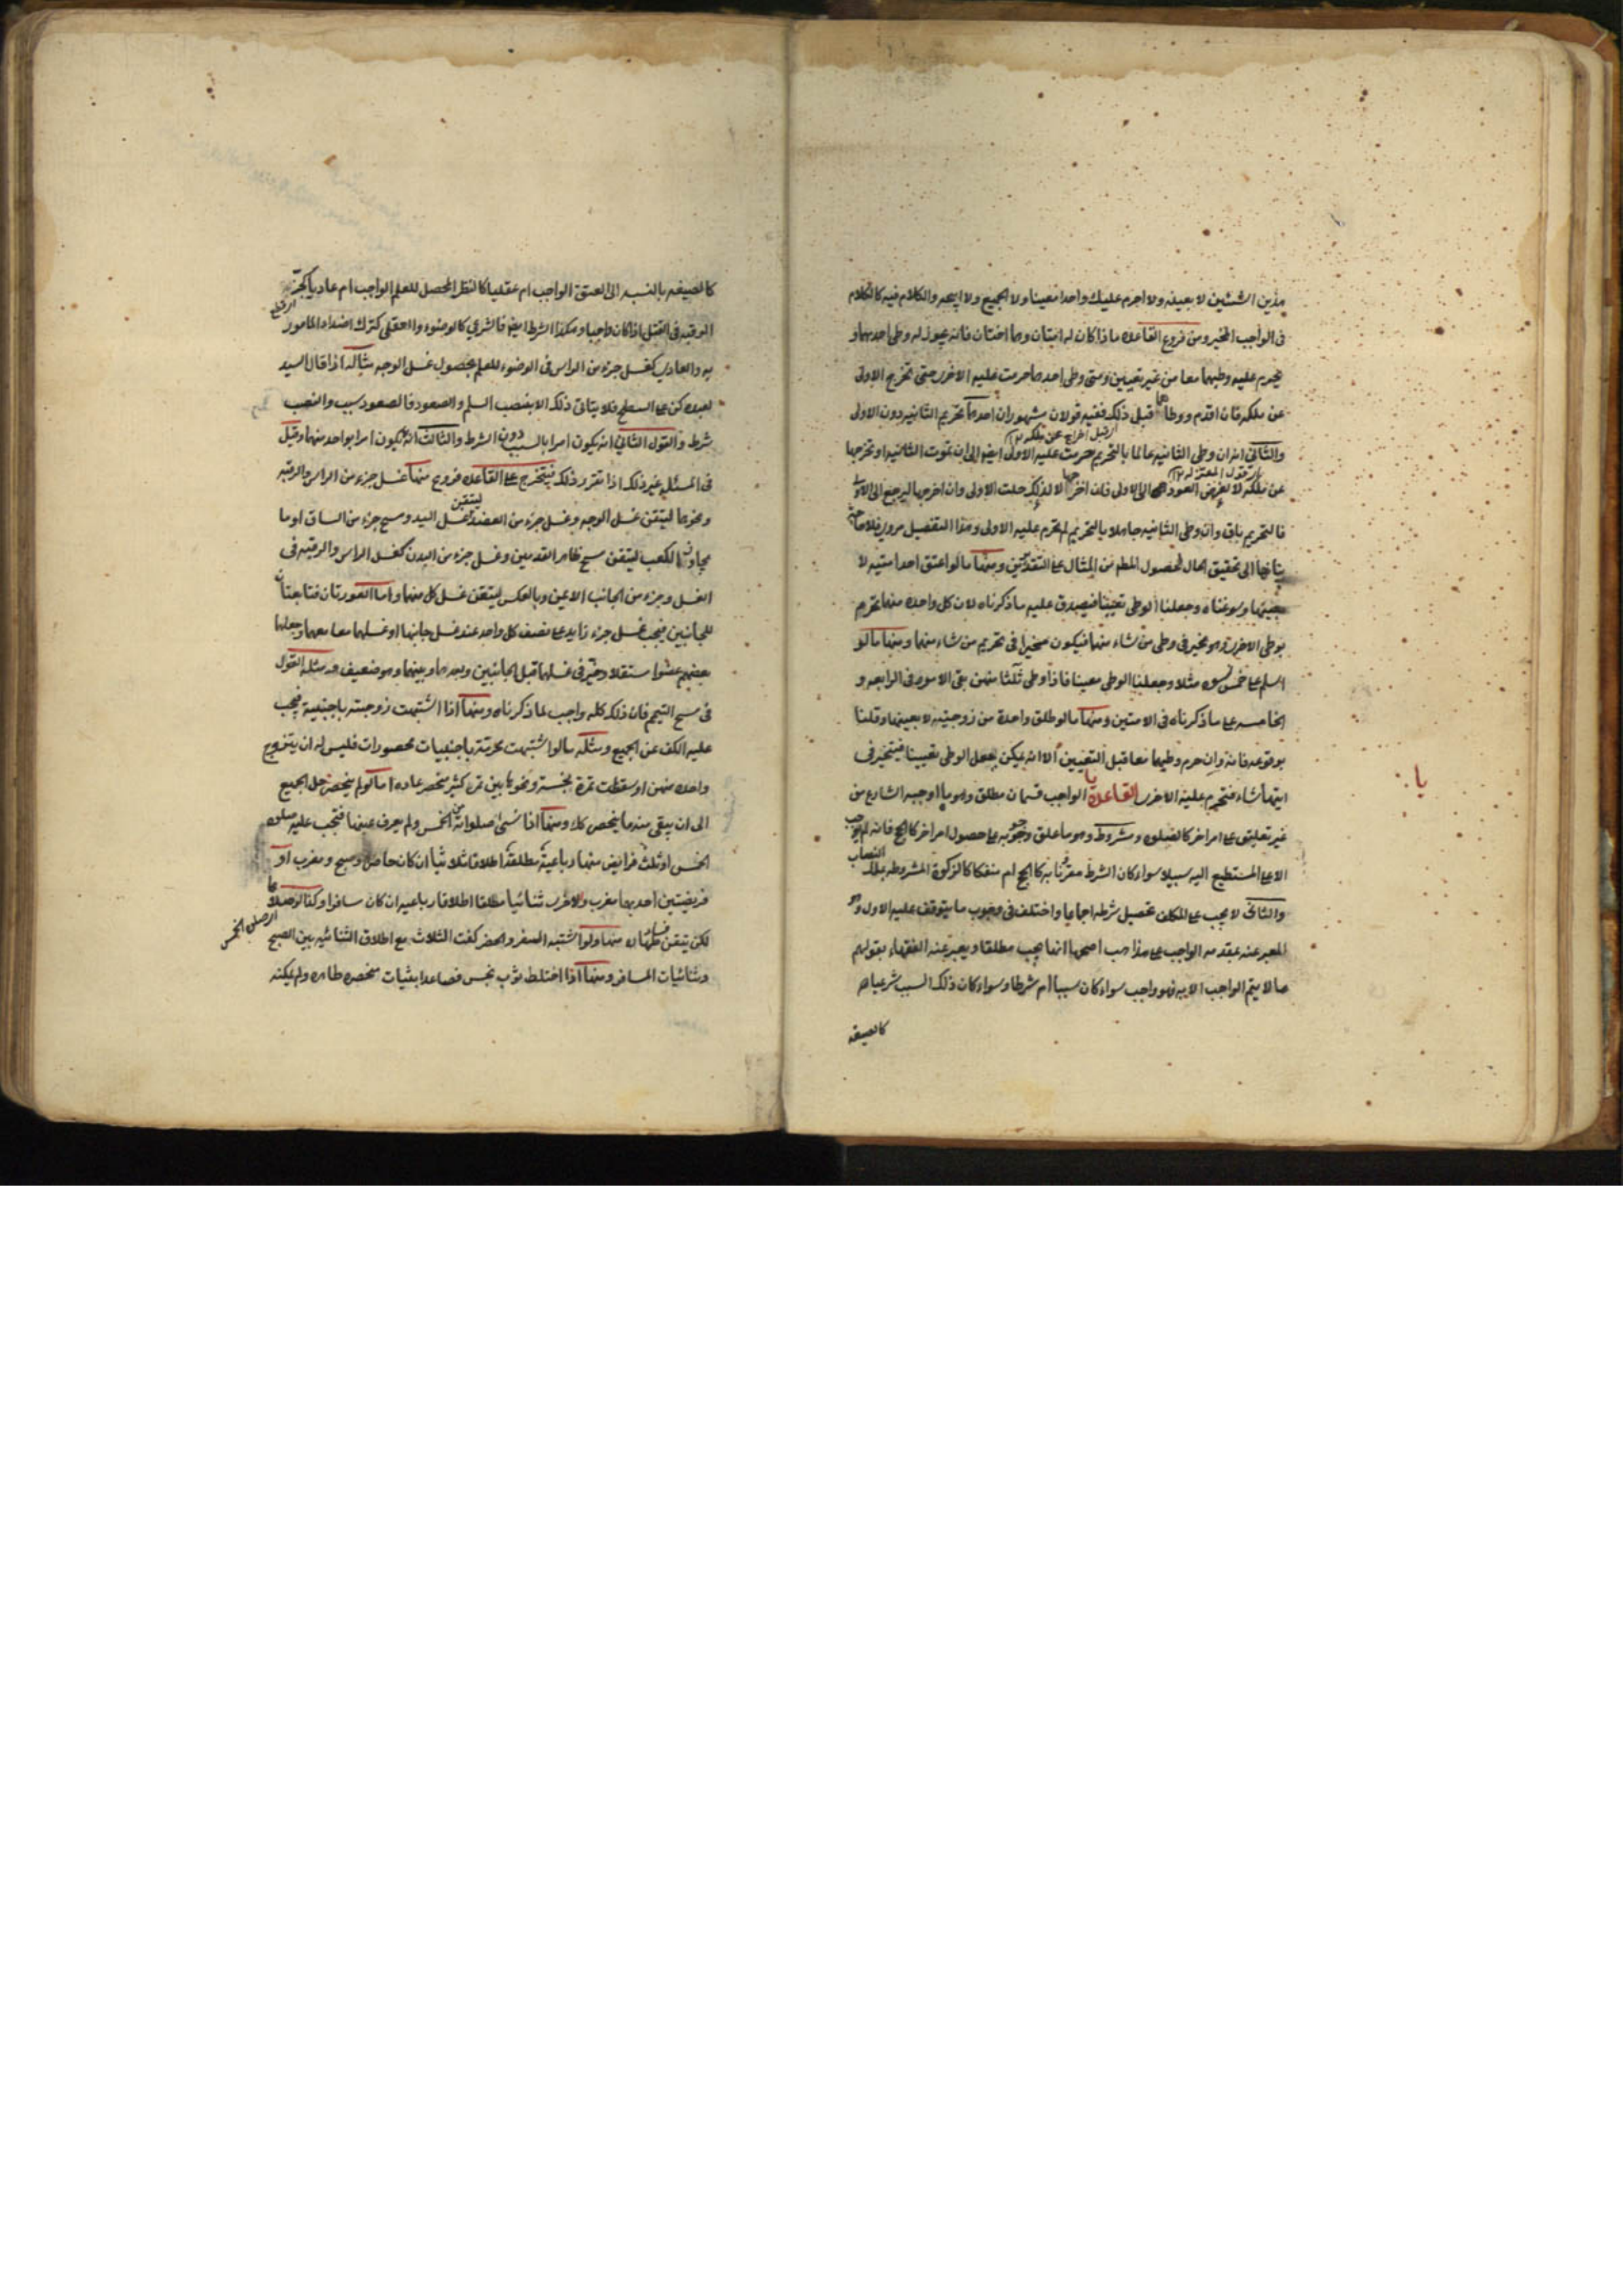 هذين الشيئين لا بعينه ولا احرم عليك واحدا معينا ولا الجميع ولا ابيحه والكلام فيه كالكلام
في الواجب المخير ومن فروع القاعده ما اذا كان له امتان وهما اختان فانه يجوز له وطى احديهما و
يحرم عليه وطيهما معا من غير تعيين ومتى وطى احدهما حرمت عليه الاخرى حتى تخرج الاولى
عن ملكه فان اقدم ووطاها قبل ذلك ففيه قولان مشهوران احدهما تحريم الثانيه دون الاولى
والثاني انه ان وطى الثانيه عالما بالتحريم حرمت عليه الاولى ايضا الى ان تموت الثانيه او تخرجها
عن ملكه لا لغرض العود الى الاولى فان اخرجها لا لذلك حلت الاولى وان اخرجها ليرجع الى الاولى
فالتحريم باق وان وطى الثانيه جاهلا بالتحريم لم تحرم عليه الاولى وهذا التفصيل مروي فلا حاجة
بنا فيها الى تحقيق الحال لحصول المطلم من المثال على التقديرين ومنها ما لو اعتق احد امتيه لا
بعينها وسوغناه وجعلنا الوطى تعيينا فيصدق عليه ما ذكرناه لان كل واحده منهما تحرم
بوطى الاخرى وهو مخير في وطى من شاء منهما فيكون مخيرا في تحريم من شاء منهما ومنها ما لو
اسلم على خمس نسوه مثلا وجعلنا الوطى معينا فاذا وطى ثلثا منهن بقى الامر في الرابعه و
الخامسه على ما ذكرناه في الامتين ومنها ما لو طلق واحدة من زوجتيه لا بعينها وقلنا
بوقوعه فانه وان حرم وطيهما معا قبل التعيين الا انه يمكن بجعل الوطى تعيينا فيتخير في
ايتهما شاء فتحرم عليه الاخرى القاعدة يا الواجب قسمان مطلق وهو ما اوجبه الشارع من
يا:
غير تعليق على امر اخر كالصلوه ومشروط وهو ما علق وجوبه على حصول امر اخر كالحج فانه لم يجب
الا على المستطيع اليه سبيلا سواء كان الشرط مقرنا به كالحج ام منفكا كالزكوة المشروطه بملك النصاب
والثاني لا يجب على المكلف تحصيل شرطه اجماعا واختلف في وجوب ما يتوقف عليه الاول وهو
المعبر عنه بمقدمه الواجب على مذاهب اصحها انها يجب مطلقا ويعبر عنه الفقهاء بقولهم
ما لا يتم الواجب الا به فهو واجب سواء كان سببا ام شرطا وسواء كان ذلك السبب شرعيا
كالصيغه
كالصيغه بالنسبه الى العتق الواجب ام عقليا كالنظر المحصل للعلم الواجب ام عاديا كحز
الرقبه في القتل اذا كان واجبا وهكذا الشرط ايضا فالشرعي كالوضوء والعقلي كترك اضداد المامور
به والعادي كغسل جزء من الراس في الوضوء للعلم بحصول غسل الوجه مثاله اذا قال السيد
لعبده كن على السطح فلا يتاتى ذلك الا بنصب السلم والصعود فالصعود سبب والنصب
شرط والقول الثاني انه يكون امرا بالسبب دون الشرط والثالث انه لا يكون امرا بواحد منهما وقيل
في المسئله غير ذلك اذا تقرر ذلك فيتخرج على القاعده فروع منها غسل جزء من الراس والرقبه
ونحوهما ليتيقن غسل الوجه وغسل جزء من العضد ليتيقن غسل اليد ومسح جزء من الساق او ما
يحاذي الكعب ليتيقن مسح ظاهر القدمين وغسل جزء من البدن كغسل الراس والرقبه في
الغسل وجزء من الجانب الايمن وبالعكس ليتيقن غسل كل منهما واما العورتان فتابعتان
للجانبين فيجب غسل جزء زايد على نصف كل واحد عند غسل جانبها او غسلهما معا معهما وجعلها
بعضهم عضوا مستقلا وخير في غسلها قبل الجانبين وبعدهما وبينهما وهو ضعيف ومثله القول
في مسح التيمم فان ذلك كله واجب لما ذكرناه ومنها اذا اشتبهت زوجته باجنبية فيجب
عليه الكف عن الجميع ومثله ما لو اشتبهت محرمة باجنبيات محصورات فليس له ان يتزوج
واحده منهن او سقطت تمرة نجسة ونحوها بين تمر كثير منحصر عاده اما لو لم ينحصر حل الجميع
الى ان يبقى منه ما ينحصر كك ومنها اذا نسى صلوة من الخمس ولم يعرف عينها فتجب عليه صلوة
الخمس او ثلث فرايض منها رباعية مطلقة اطلاقا ثلاثيا ان كان حاضرا وصبح ومغرب او
فريضتين احديهما مغرب والاخرى ثنائيا مطلقا اطلاقا رباعيه ان كان مسافرا وكذا لو صلا
لكن تيقن فساد طهاره منها ولو اشتبه السفر والحضر كفت الثلاث مع اطلاق الثنائيه بين الصبح
وثنائيات المسافر ومنها اذا اختلط ثوب نجس فصاعدا بثياب منحصره طاهره ولم يمكنه